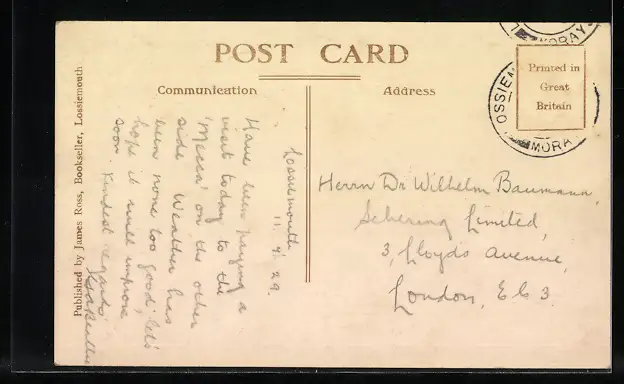 POST CARD
Communication
Address
Printed in
Great
Britain
LOSSIEM
MORAY
OSSIEM
MORA
Published by James Ross, Bookseller, Lossiemouth
Lossiemouth
11. 4. 29.
Have been paying a
visit today to the
'Mecca' on the other
side. Weather has
been none too good, let's
hope it will improve
soon. Kindest regards
Herrn Dr Wilhelm Baumann,
Schering Limited,
3, Lloyds Avenue,
London, E.C 3.